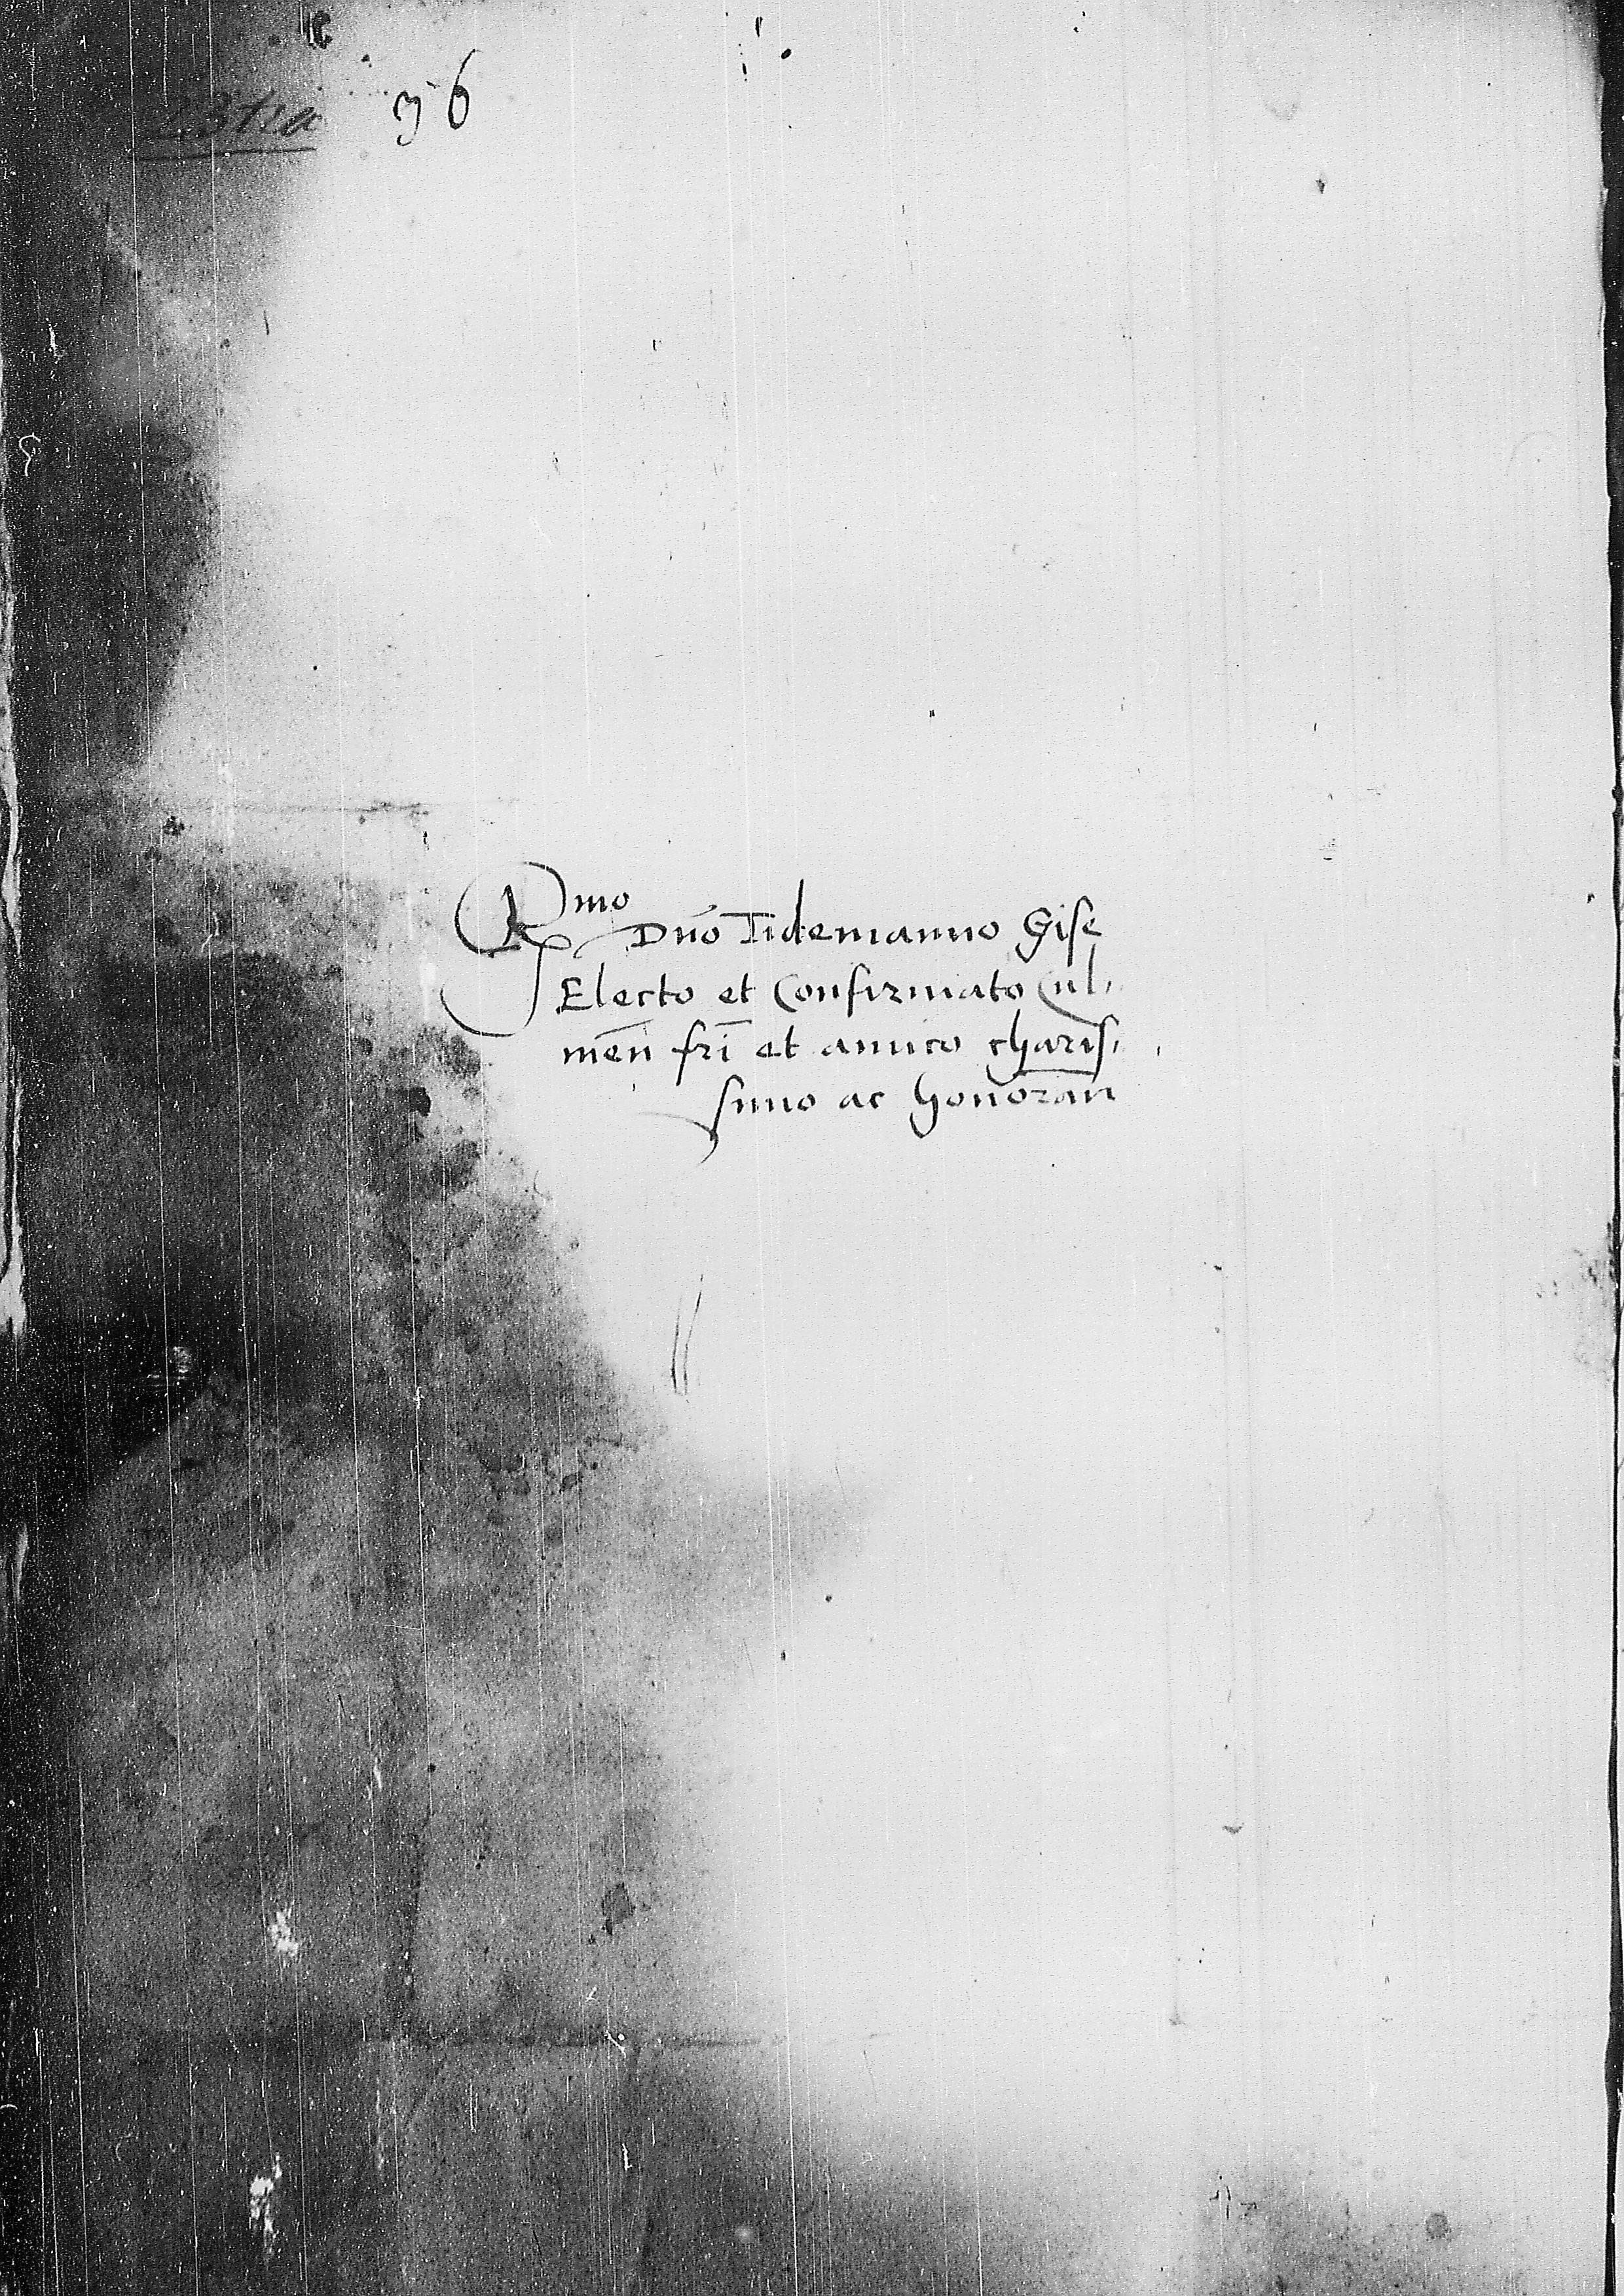 36
Rmo
Dno Tidemanno Gise
Electo et Confirmato Cul,
men̄ frī et amico charis,
simo ac honoran̄